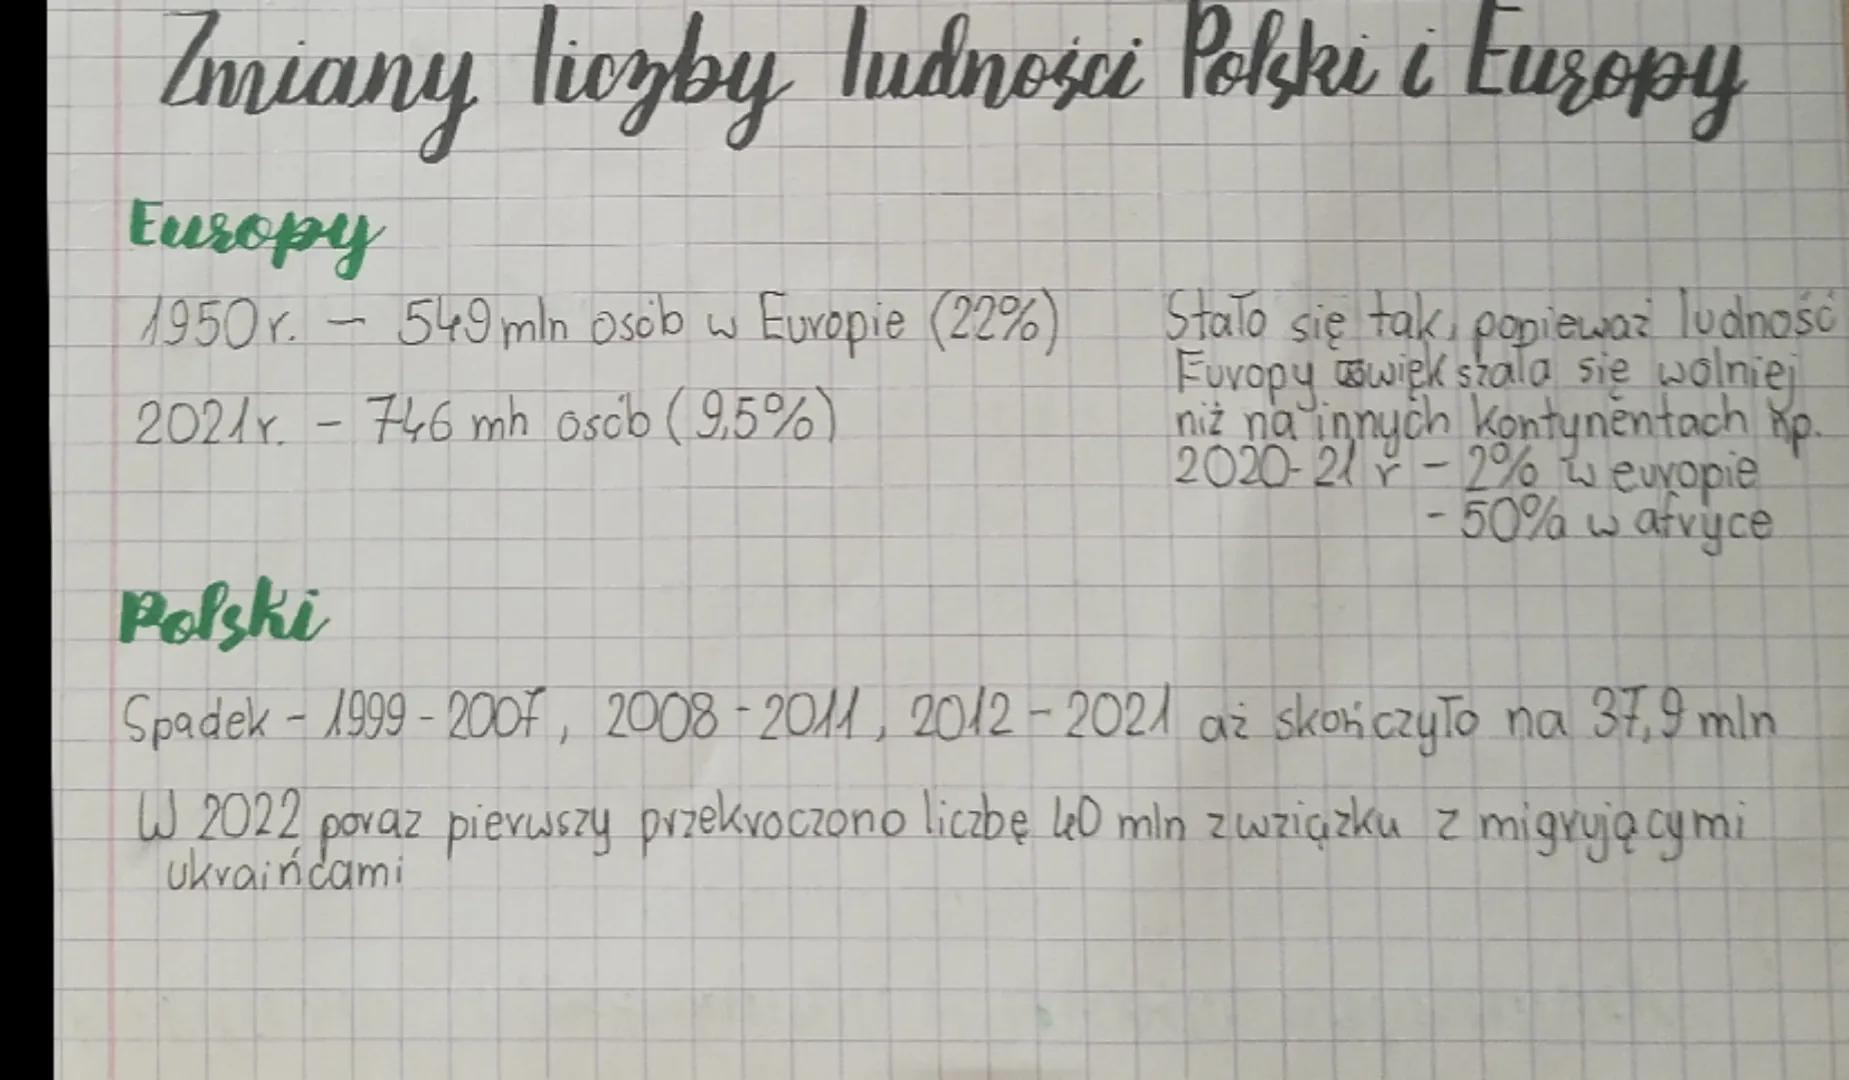 Zmiany liczby ludności Polski i Europy
Europy
1950r. – 549 mln osób w Europie (22%)
2021r. – 746 mln osób (9,5%)
Stało się tak, popieważ ludność
Europy zwiększała się wolniej
niż na innych kontynentach np.
2020-21 r – 2% w europie
- 50% w afryce
Polski
Spadek – 1999 – 2007, 2008 - 2011, 2012 – 2021 aż skończyło na 37,9 mln
W 2022 poraz pierwszy przekroczono liczbę 40 mln zwziązku z migrującymi
ukraińcami